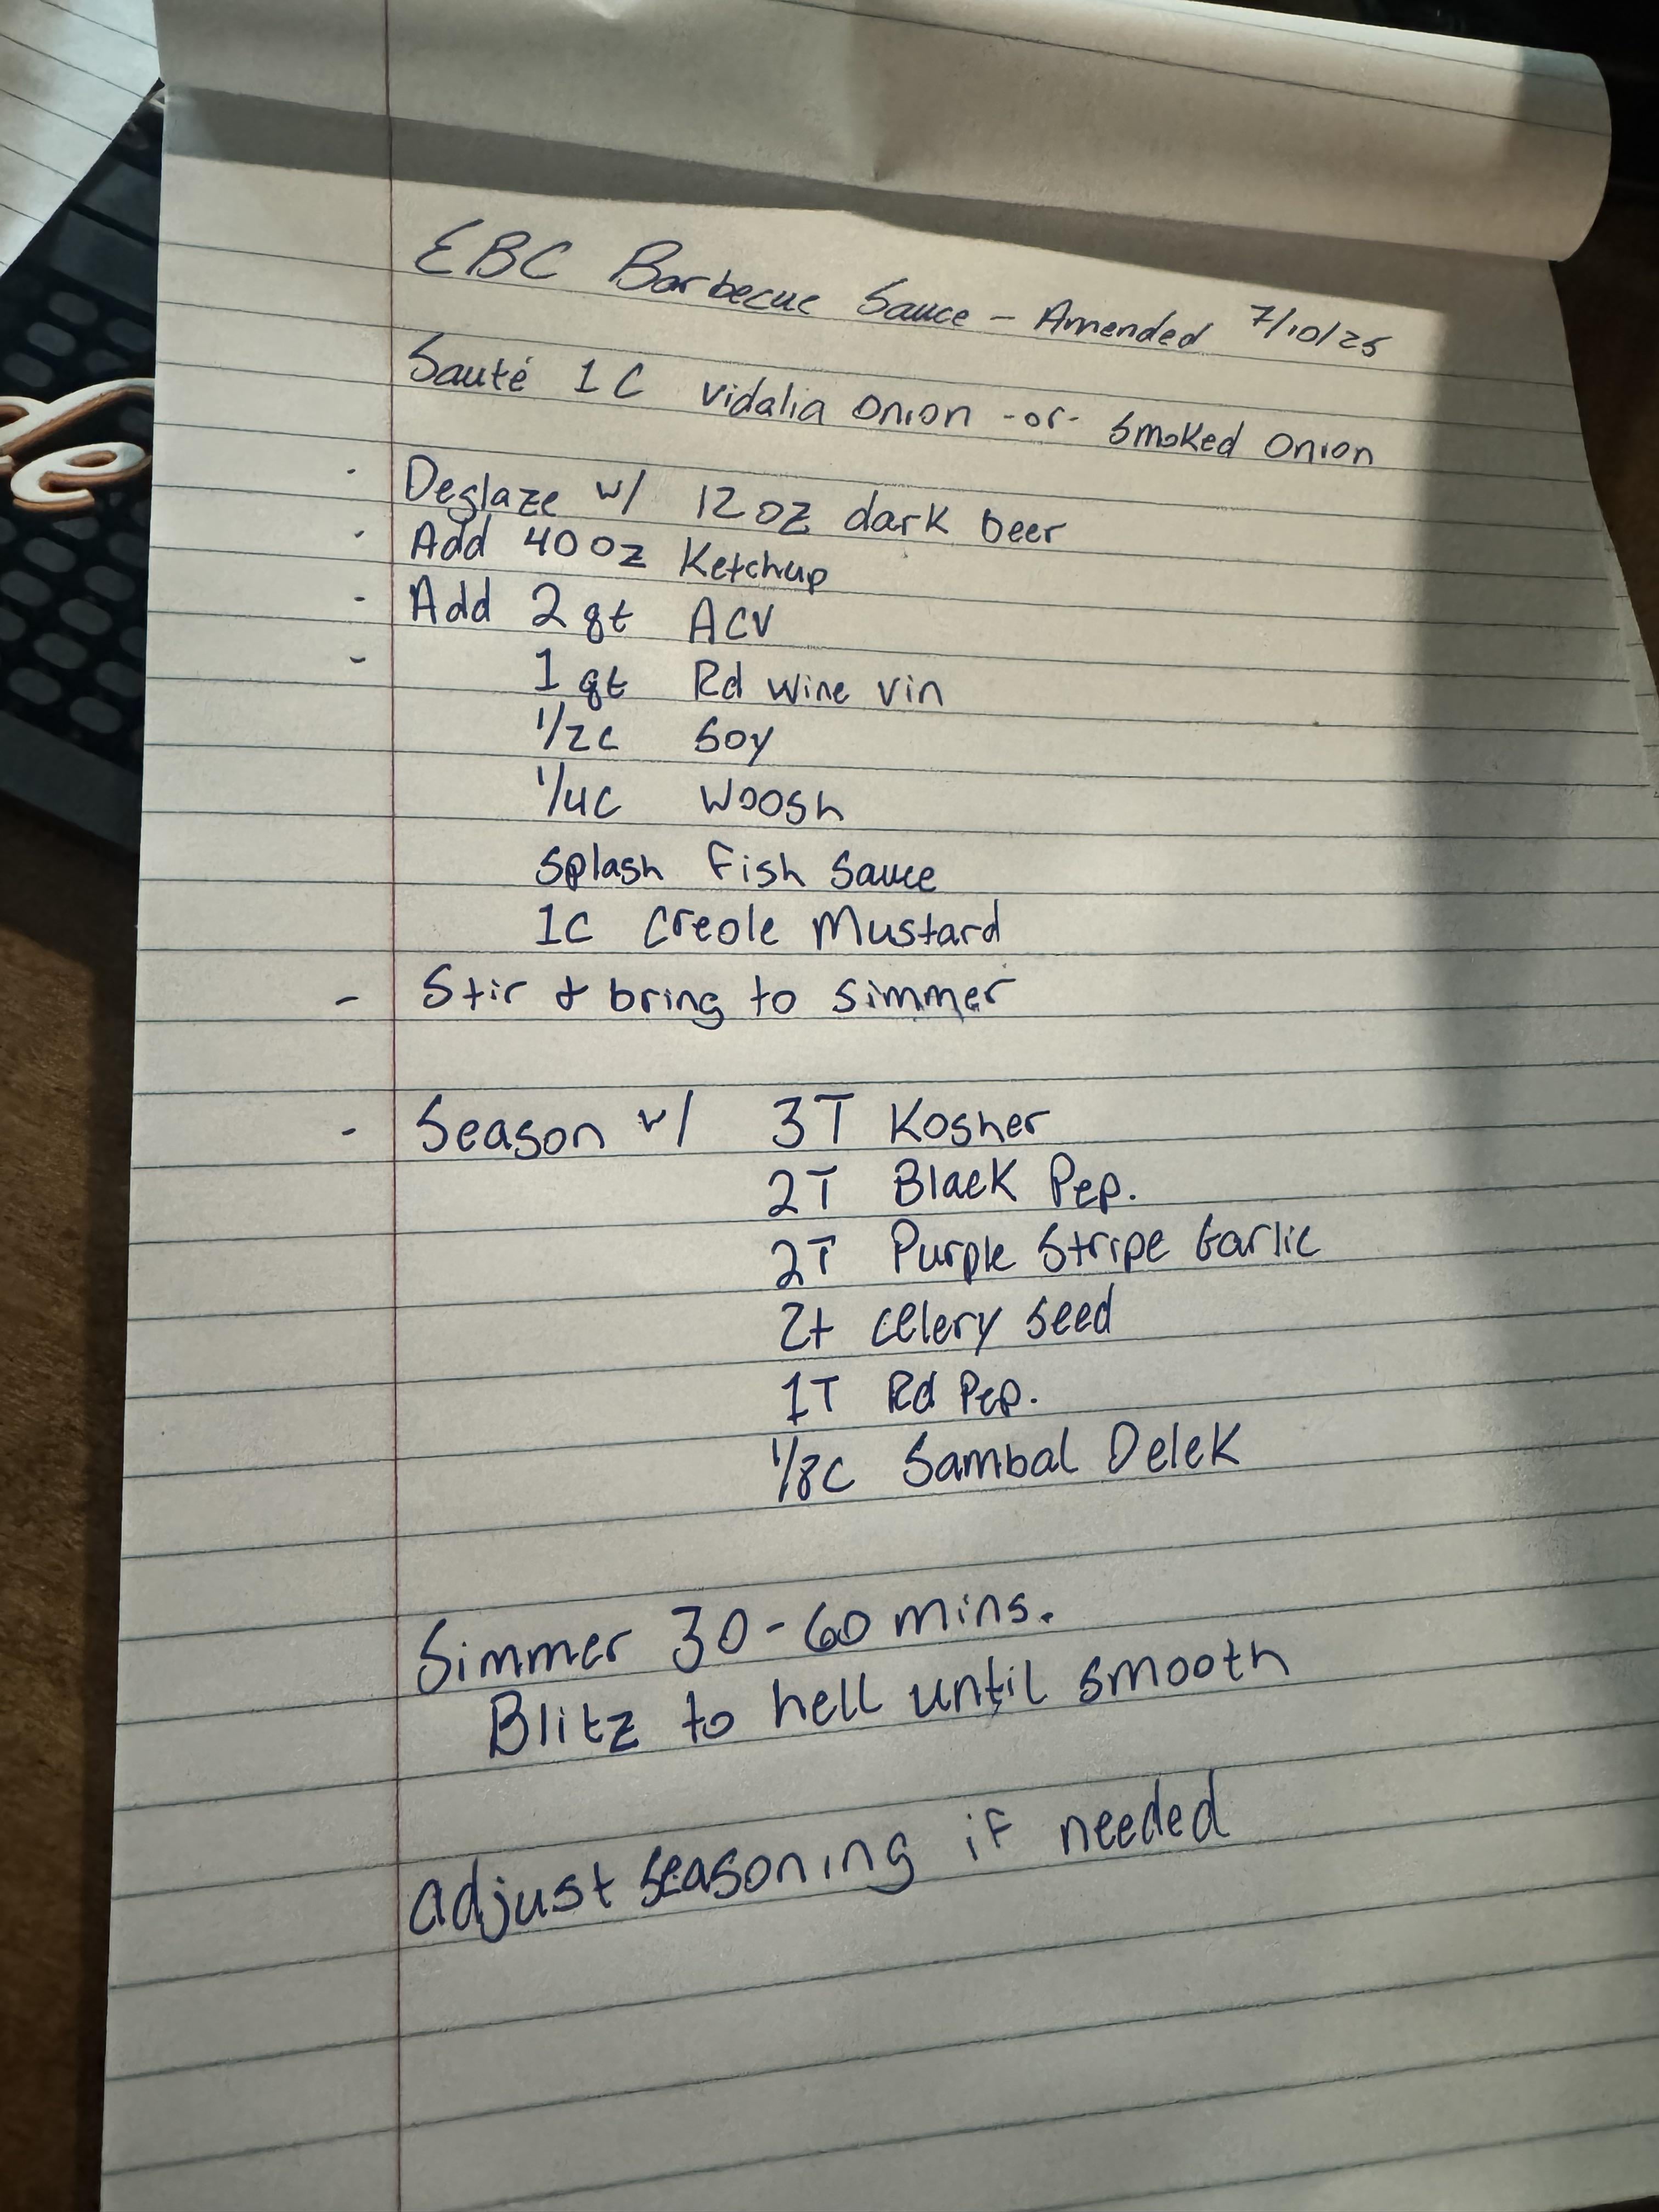 EBC Barbecue Sauce - Amended 7/10/25
Sauté 1 C Vidalia Onion -or- Smoked Onion
· Deglaze w/ 12 oz dark beer
· Add 40 oz Ketchup
- Add 2 qt ACV
- 1 qt Rd wine vin
1/2 C Soy
1/4 C Woosh
Splash Fish Sauce
1C Creole Mustard
- Stir & bring to simmer
- Season w/ 3T Kosher
2T Black Pep.
2T Purple Stripe Garlic
2t celery seed
1T Rd Pep.
1/8C Sambal Oelek
Simmer 30-60 mins.
Blitz to hell until smooth
adjust seasoning if needed